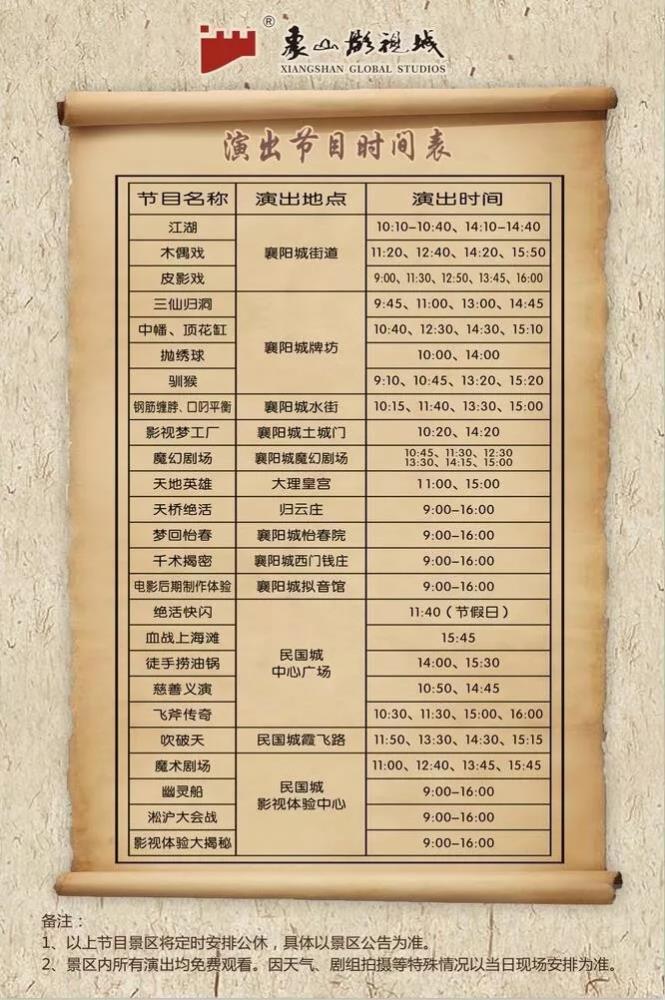 ®
象山影视城
XIANGSHAN GLOBAL STUDIOS
演出节目时间表
节目名称 演出地点 演出时间
江湖 襄阳城街道 10:10-10:40、14:10-14:40
木偶戏 11:20、12:40、14:20、15:50
皮影戏 9:00、11:30、12:50、13:45、16:00
三仙归洞 襄阳城牌坊 9:45、11:00、13:00、14:45
中幡、顶花缸 10:40、12:30、14:30、15:10
抛绣球 10:00、14:00
驯猴 9:10、10:45、13:20、15:20
钢筋缠脖、口叼平衡 襄阳城水街 10:15、11:40、13:30、15:00
影视梦工厂 襄阳城土城门 10:20、14:20
魔幻剧场 襄阳城魔幻剧场 10:45、11:30、12:30
13:30、14:15、15:00
天地英雄 大理皇宫 11:00、15:00
天桥绝活 归云庄 9:00-16:00
梦回怡春 襄阳城怡春院 9:00-16:00
千术揭密 襄阳城西门钱庄 9:00-16:00
电影后期制作体验 襄阳城拟音馆 9:00-16:00
绝活快闪 民国城
中心广场 11:40（节假日）
血战上海滩 15:45
徒手捞油锅 14:00、15:30
慈善义演 10:50、14:45
飞斧传奇 10:30、11:30、15:00、16:00
吹破天 民国城霞飞路 11:50、13:30、14:30、15:15
魔术剧场 民国城
影视体验中心 11:00、12:40、13:45、15:45
幽灵船 9:00-16:00
淞沪大会战 9:00-16:00
影视体验大揭秘 9:00-16:00
备注：
1、以上节目景区将定时安排公休，具体以景区公告为准。
2、景区内所有演出均免费观看。因天气、剧组拍摄等特殊情况以当日现场安排为准。